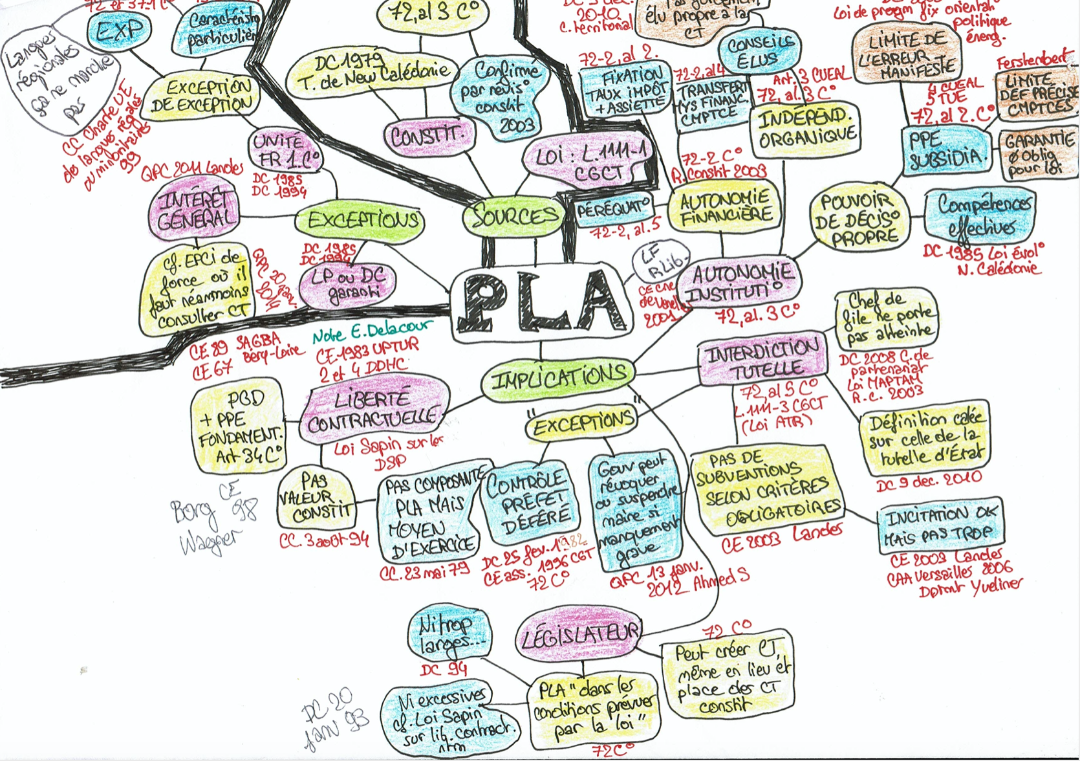 72 et 37-1 C°
EXP
Caractérist
particulier
Langues
régionales
ça ne marche
pas
EXCEPTION
DE EXCEPTION
CC Charte UE
de langues régales
ou minoritaires
99
UNITÉ
FR 1.C°
DC 1985
DC 1994
QPC 2011 Landes
INTÉRÊT
GÉNÉRAL
EXCEPTIONS
Cf. EPCI de
force où il
faut néanmoins
consulter CT
QPC 20 janv.
2014
DC 1985
DC 1994
LP ou DC
garanti
72, al 3 C°
DC 1979
T. de New Calédonie
Confirme
par révis°
constit
2003
CONSTIT.
LOI : L.1111-1
CGCT
SOURCES
PLA
2010
C. territorial
élu propre à la
CT
CONSEILS
ÉLUS
Art. 3 CUEAL
72, al. 3 C°
INDÉPEND.
ORGANIQUE
72-2, al. 2.
FIXATION
TAUX IMPÔT
+ ASSIETTE
72-2, al 4
TRANSFERT
MYS FINANC.
CMPTCE
72-2 C°
R. Constit 2003
PÉRÉQUAT°
72-2, al. 5
AUTONOMIE
FINANCIÈRE
LF
R Lib.
2001
AUTONOMIE
INSTITUTI°
72, al. 3 C°
Loi de progm fix orientat°
politique
énerg.
LIMITE DE
L'ERREUR
MANIFESTE
4 CUEAL
5 TUE
72, al 2. C°
PPE
SUBSIDIA.
LIMITE
DÉF PRÉCISE
CMPTCES
GARANTIE
Ø oblig
pour loi
POUVOIR
DE DÉCIS°
PROPRE
Compétences
effectives
DC 1985 Loi évol°
N. Calédonie
CE 89 SAGBA
Béry-Loire
CE 67
Note E. Delacour
CE 1983 UPTUR
2 et 4 DDHC
IMPLICATIONS
LIBERTÉ
CONTRACTUELLE
Loi Sapin sur les
DSP
PGD
+ PPE
FONDAMENT.
Art 34 C°
PAS
VALEUR
CONSTIT
CC. 3 août 94
Borg
CE
98
Wagner
PAS COMPOSANTE
PLA MAIS
MOYEN
D'EXERCICE
CC. 23 mai 79
"EXCEPTIONS"
CONTRÔLE
PRÉFET
DÉFÉRÉ
DC 25 fev. 1982
CE ass. 1996 CGT
72 C°
Gouv peut
révoquer
ou suspendre
maire si
manquement
grave
QPC 13 janv.
2012 Ahmed S
INTERDICTION
TUTELLE
72, al 5 C°
L.1111-3 CGCT
(Loi ATR)
Chef de
file ne porte
pas atteinte
DC 2008 C. de
partenariat
Loi MAPTAM
R.C. 2003
Définition calée
sur celle de la
tutelle d'État
DC 9 dec. 2010
PAS DE
SUBVENTIONS
SELON CRITÈRES
OBLIGATOIRES
CE 2003 Landes
INCITATION OK
MAIS PAS TROP
CE 2003 Landes
CAA Versailles 2006
Dptmt Yveliner
LÉGISLATEUR
Ni trop
larges...
DC 94
Ni excessives
cf. Loi Sapin
sur lib. contract.
DC 20
janv 93
PLA "dans les
conditions prévues
par la loi"
72 C°
72 C°
Peut créer CT,
même en lieu et
place des CT
constit